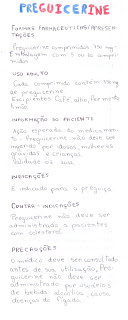 PREGUICERINE
FORMAS FARMACEUTICAS/APRESEN-
TAÇÕES
Preguicerine comprimidos 750 mg
Embalagem com 5 ou 60 compri-
midos
USO ADULTO
Cada comprimido contém 750 mg
de preguicerine
Excipientes: Café,
INFORMAÇÃO AO PACIENTE
Ação esperada do medicamen-
to Preguicerine não deve ser
ingerido por idosos, mulheres
grávidas e crianças.
Validade
INDICAÇÕES
É indicado para a preguiça
CONTRA-INDICAÇÕES
Preguicerine não deve ser
administrado a pacientes
com colesterol
PRECAUÇÕES
O médico deve ser consultado
antes de sua utilização. Pre-
guicerine não deve ser
administrado por usuários
de bebida alcoólica, causa
doenças do fígado.